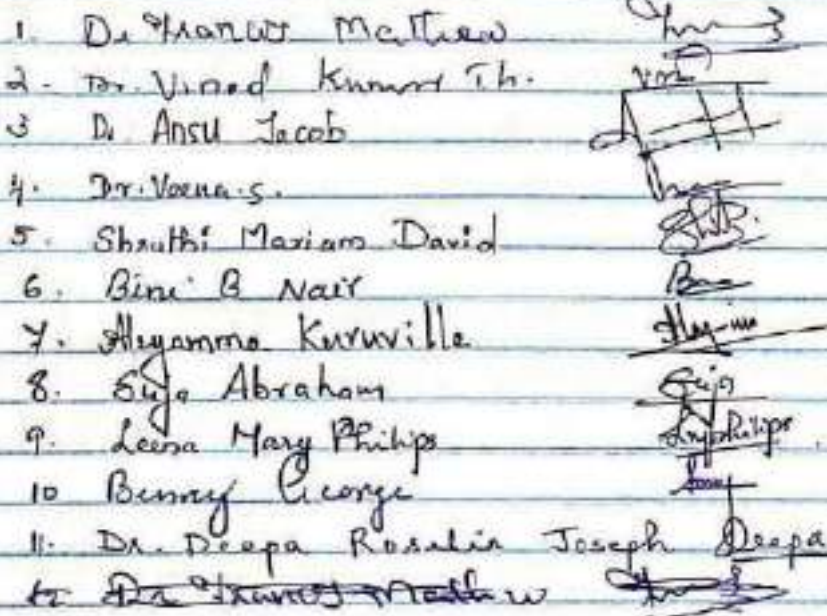 1. Dr Francis Mathew
2. Dr. Vinod Kumar Th.
3 Dr Ansu Jacob
4. Dr. Veena. S.
5. Shruthi Mariam David
6. Bini B Nair
7. Aleyamma Kuruvilla
8. Suja Abraham Suja
9. Leena Mary Philips
10 Benney George
11. Dr. Deepa Roselin Joseph Deepa
12 Dr Francis Mathew